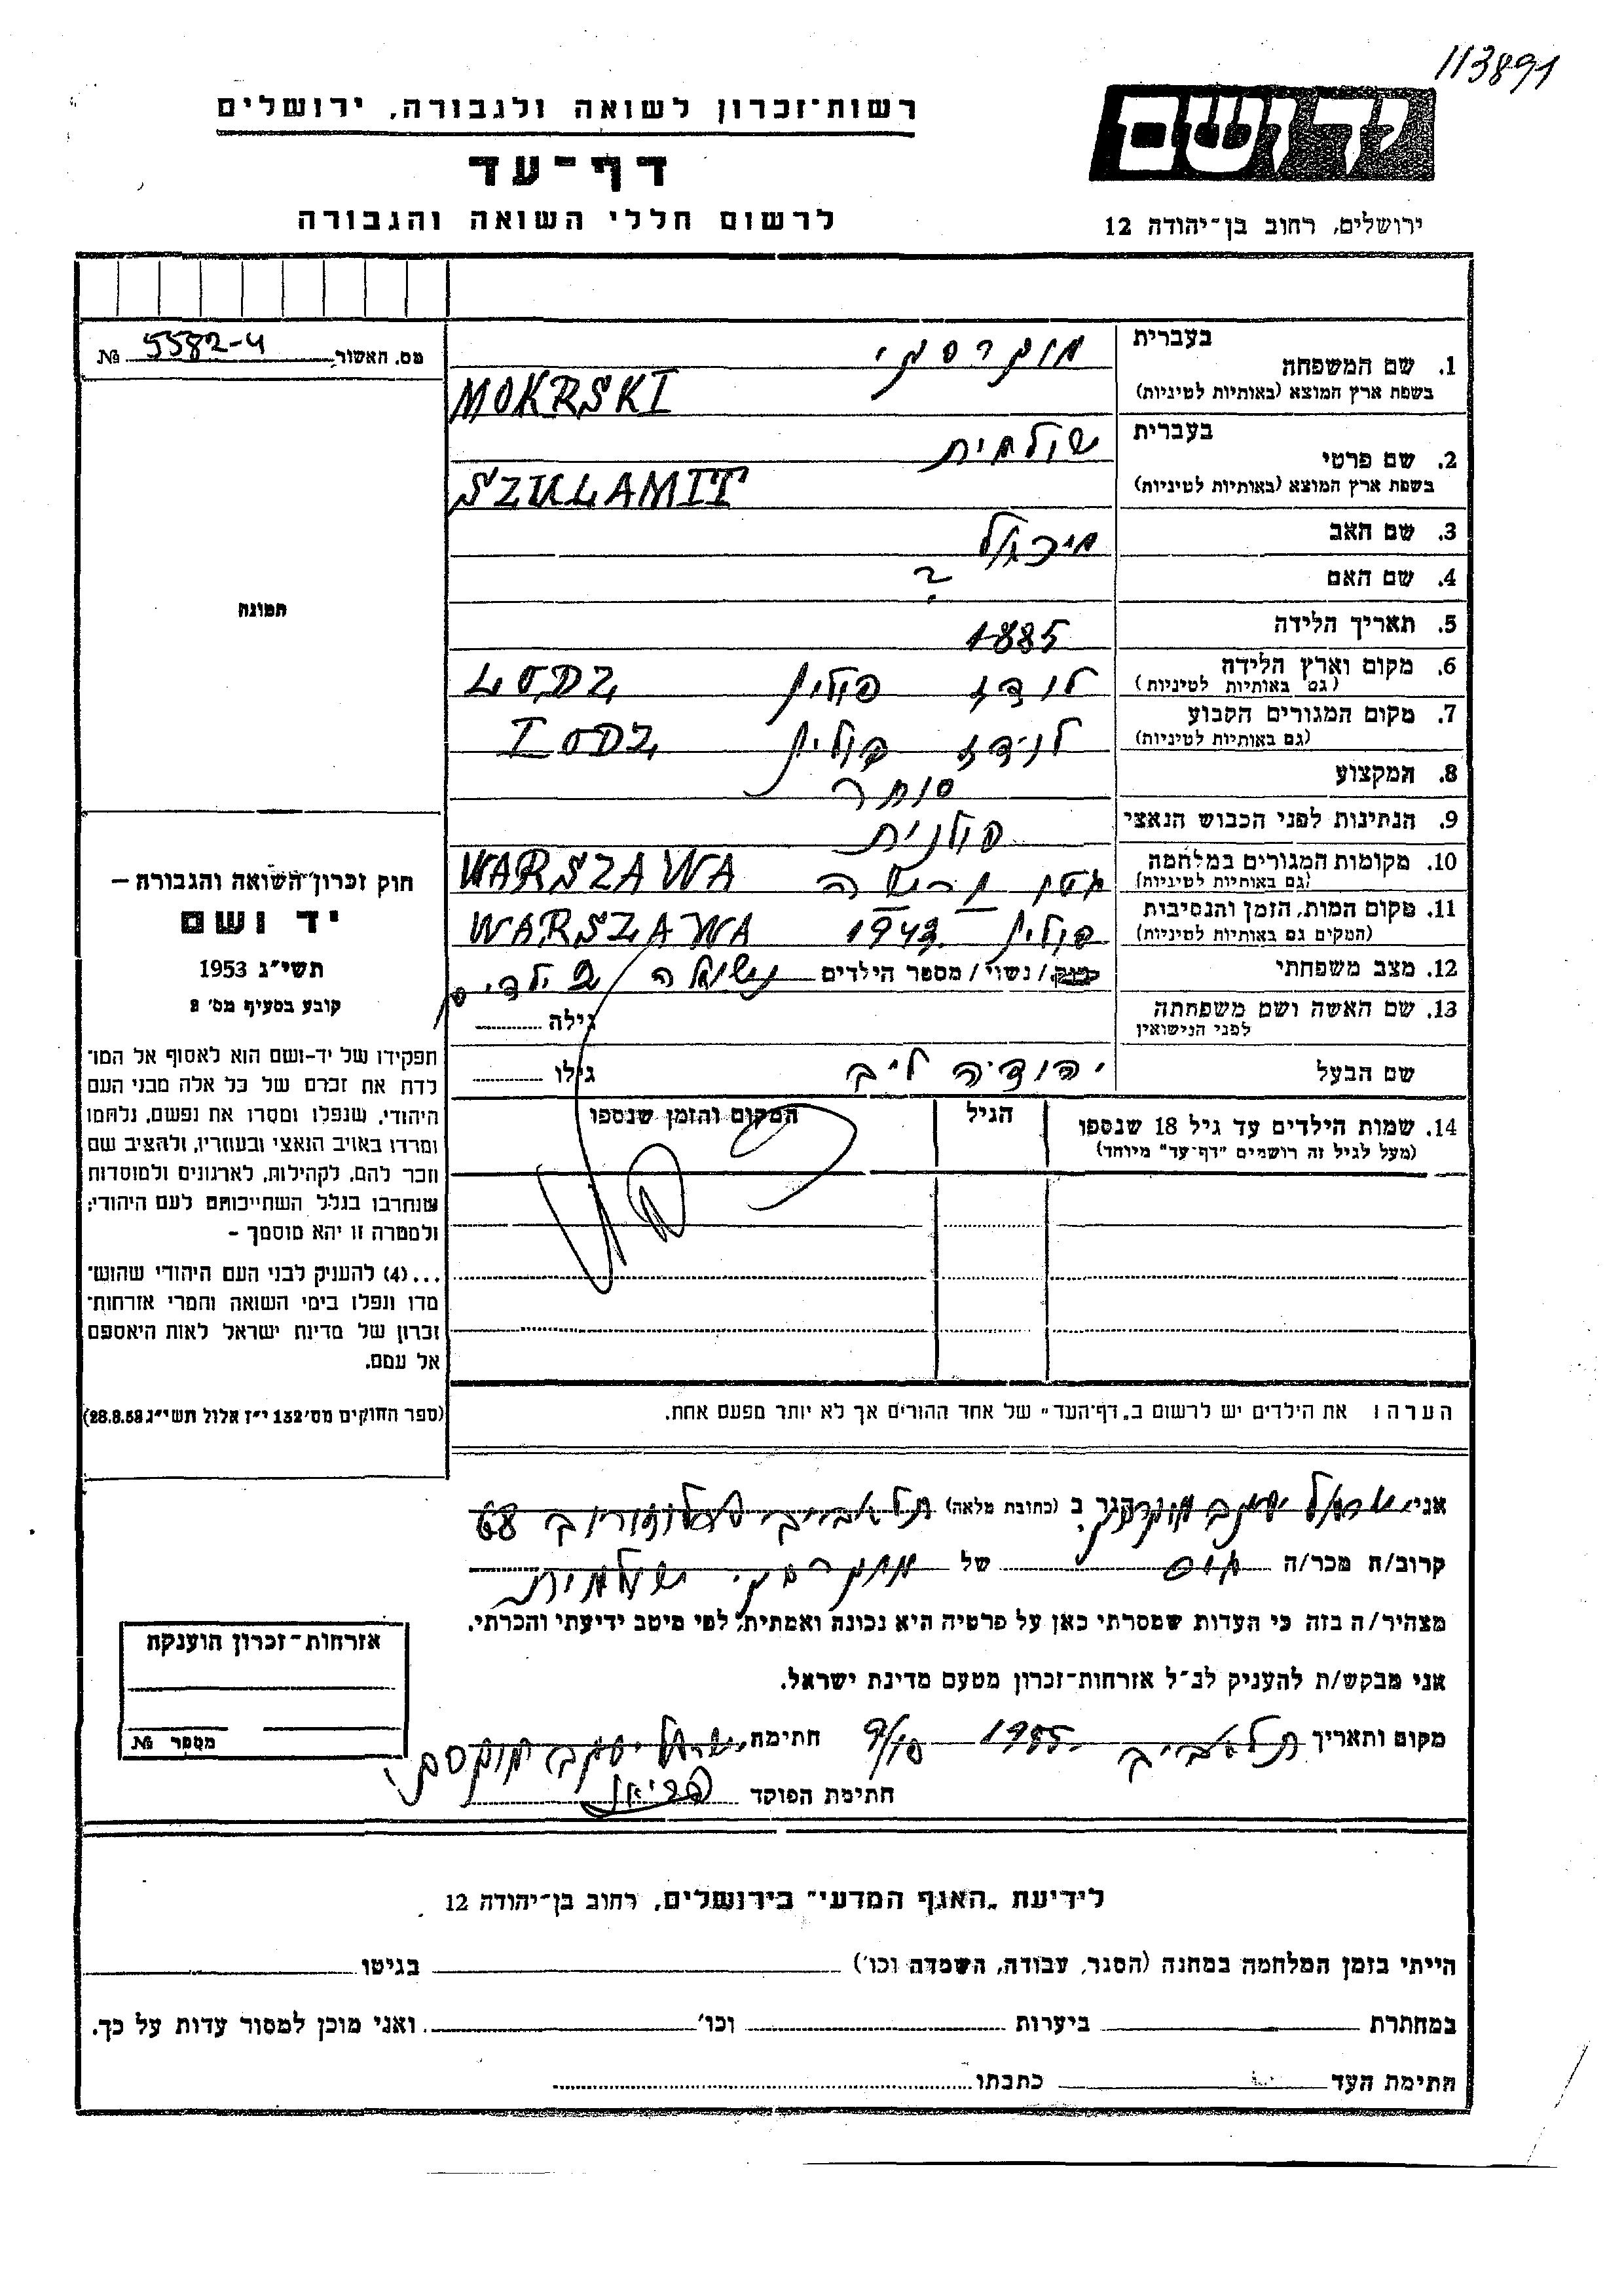 113891
רשות־זכרון לשואה ולגבורה, ירושלים
יד ושם
דף־עד
לרשום חללי השואה והגבורה
ירושלים, רחוב בן־יהודה 12
מס. האשור № 5582-4
בעברית מוקרסקי
1. שם המשפחה
בשפת ארץ המוצא (באותיות לטיניות) MOKRSKI
בעברית שולמית
2. שם פרטי
בשפת ארץ המוצא (באותיות לטיניות) SZULAMIT
3. שם האב מיכאל
4. שם האם ?
5. תאריך הלידה 1885
6. מקום וארץ הלידה לודז פולין LODZ
(גם באותיות לטיניות)
7. מקום המגורים הקבוע לודז פולין LODZ
(גם באותיות לטיניות)
8. המקצוע סוחר
9. הנתינות לפני הכבוש הנאצי פולנית
10. מקומות המגורים במלחמה WARSZAWA
(גם באותיות לטיניות)
11. מקום המות, הזמן והנסיבות פולין 1943 WARSZAWA
(המקום גם באותיות לטיניות)
12. מצב משפחתי רוק/נשוי/מספר הילדים נשואה 2 ילדים
13. שם האשה ושם משפחתה גילה
לפני הנישואין
שם הבעל יהודה ליב גילו
14. שמות הילדים עד גיל 18 שנספו הגיל המקום והזמן שנספו
(מעל לגיל זה רושמים "דף־עד" מיוחד)
תמונה
חוק זכרון השואה והגבורה –
יד ושם
תשי"ג 1953
קובע בסעיף מס' 2
תפקידו של יד-ושם הוא לאסוף אל המו־
לדת את זכרם של כל אלה מבני העם
היהודי, שנפלו ומסרו את נפשם, נלחמו
ומרדו באויב הנאצי ובעוזריו, ולהציב שם
וזכר להם, לקהילות, לארגונים ולמוסדות
שנחרבו בגלל השתייכותם לעם היהודי;
ולמטרה זו יהא מוסמך –
...(4) להעניק לבני העם היהודי שהוש־
מדו ונפלו בימי השואה והמרי אזרחות־
זכרון של מדינת ישראל לאות היאספם
אל עמם.
(ספר החוקים מס' 132 י"ז אלול תשי"ג 28.8.53)
הערה: את הילדים יש לרשום ב„דף־העד" של אחד ההורים אך לא יותר מפעם אחת.
אני ישראל יעקב מוקרסקי הגר ב (כתובת מלאה) תל אביב 68
קרוב/ה מכר/ה של מוקרסקי שולמית
מצהיר/ה בזה כי העדות שמסרתי כאן על פרטיה היא נכונה ואמתית, לפי מיטב ידיעתי והכרתי.
אני מבקש/ת להעניק לנ"ל אזרחות־זכרון מטעם מדינת ישראל.
מקום ותאריך תל אביב 1955 9/10 חתימה ישראל יעקב
חתימת הפוקד
אזרחות־זכרון הוענקה
מספר №
לידיעת „האגף המדעי" בירושלים, רחוב בן־יהודה 12
הייתי בזמן המלחמה במחנה (הסגר, עבודה, השמדה וכו') בגיטו
במחתרת ביערות וכו' ואני מוכן למסור עדות על כך.
חתימת העד כתבתו